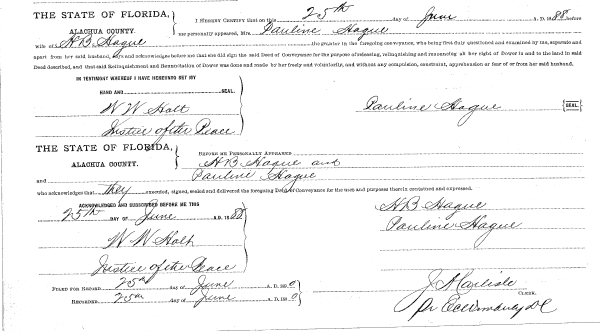 THE STATE OF FLORIDA,
ALACHUA COUNTY.
I HEREBY CERTIFY that on this 25th day of June A. D. 1888 before
me personally appeared, Mrs. Pauline Hague
wife of H B Hague the grantor in the foregoing conveyance, who being first duly questioned and examined by me, separate and
apart from her said husband, says and acknowledges before me that she did sign the said Deed of Conveyance for the purpose of releasing, relinquishing and renouncing all her right of Dower in and to the land in said
Deed described, and that said Relinquishment and Renunciation of Dower was done and made by her freely and voluntarily, and without any compulsion, constraint, apprehension or fear of or from her said husband.
IN TESTIMONY WHEREOF I HAVE HEREUNTO SET MY
HAND AND SEAL.
W W Holt
Justice of the Peace
Pauline Hague {SEAL}
THE STATE OF FLORIDA,
ALACHUA COUNTY.
BEFORE ME PERSONALLY APPEARED
H B Hague and
and Pauline Hague
who acknowledges that they executed, signed, sealed and delivered the foregoing Deed of Conveyance for the uses and purposes therein contained and expressed.
ACKNOWLEDGED AND SUBSCRIBED BEFORE ME THIS
25th DAY OF June A.D. 1888
W W Holt
Justice of the Peace
H B Hague
Pauline Hague
FILED FOR RECORD 25th day of June A. D. 188
RECORDED 25th day of June A. D. 188
J A Carlisle
CLERK.
DC